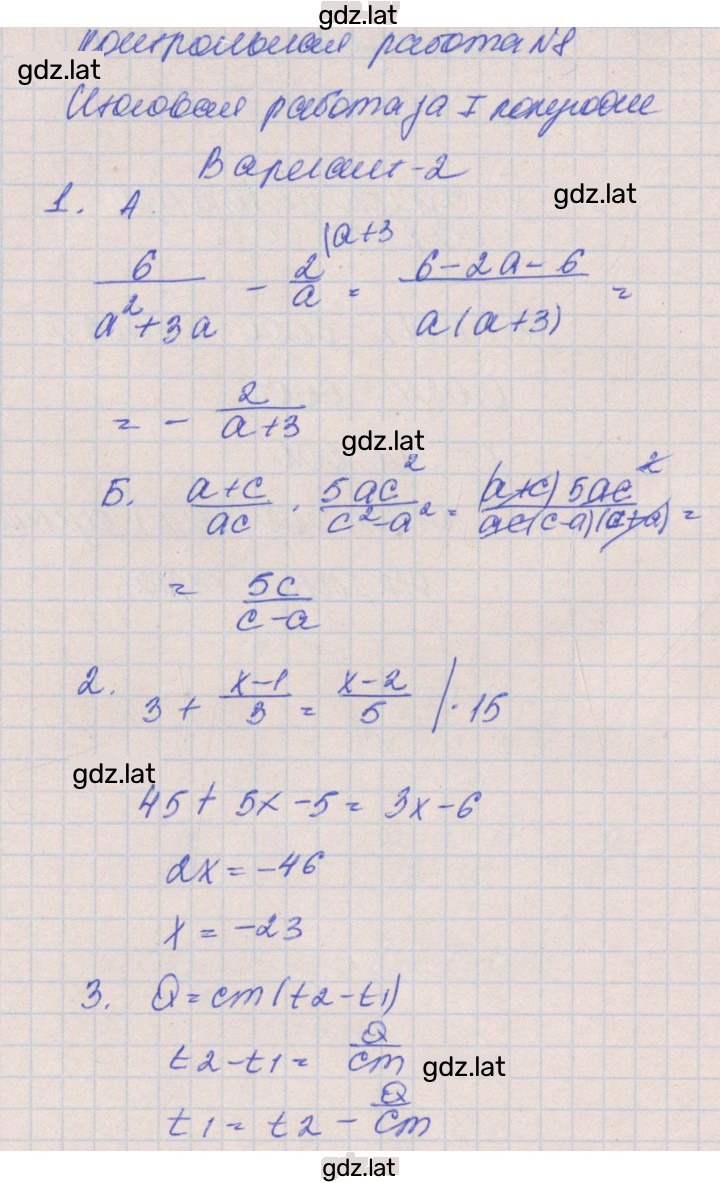 gdz.lat
Контрольная работа №8
gdz.lat
Итоговая работа за I полугодие
Вариант-2
gdz.lat
1. А.
6/(a²+3a) - 2/a |a+3 = (6-2a-6)/(a(a+3)) =
= - 2/(a+3)
gdz.lat
Б. (a+c)/(ac) · 5ac²/(c²-a²) = ((a+c) 5ac²)/(ac(c-a)(c+a)) =
= 5c/(c-a)
2. 3 + (x-1)/3 = (x-2)/5 |·15
gdz.lat
45 + 5x - 5 = 3x - 6
2x = -46
x = -23
3. Q = cm(t2-t1)
t2-t1 = Q/cm
gdz.lat
t1 = t2 - Q/cm
gdz.lat